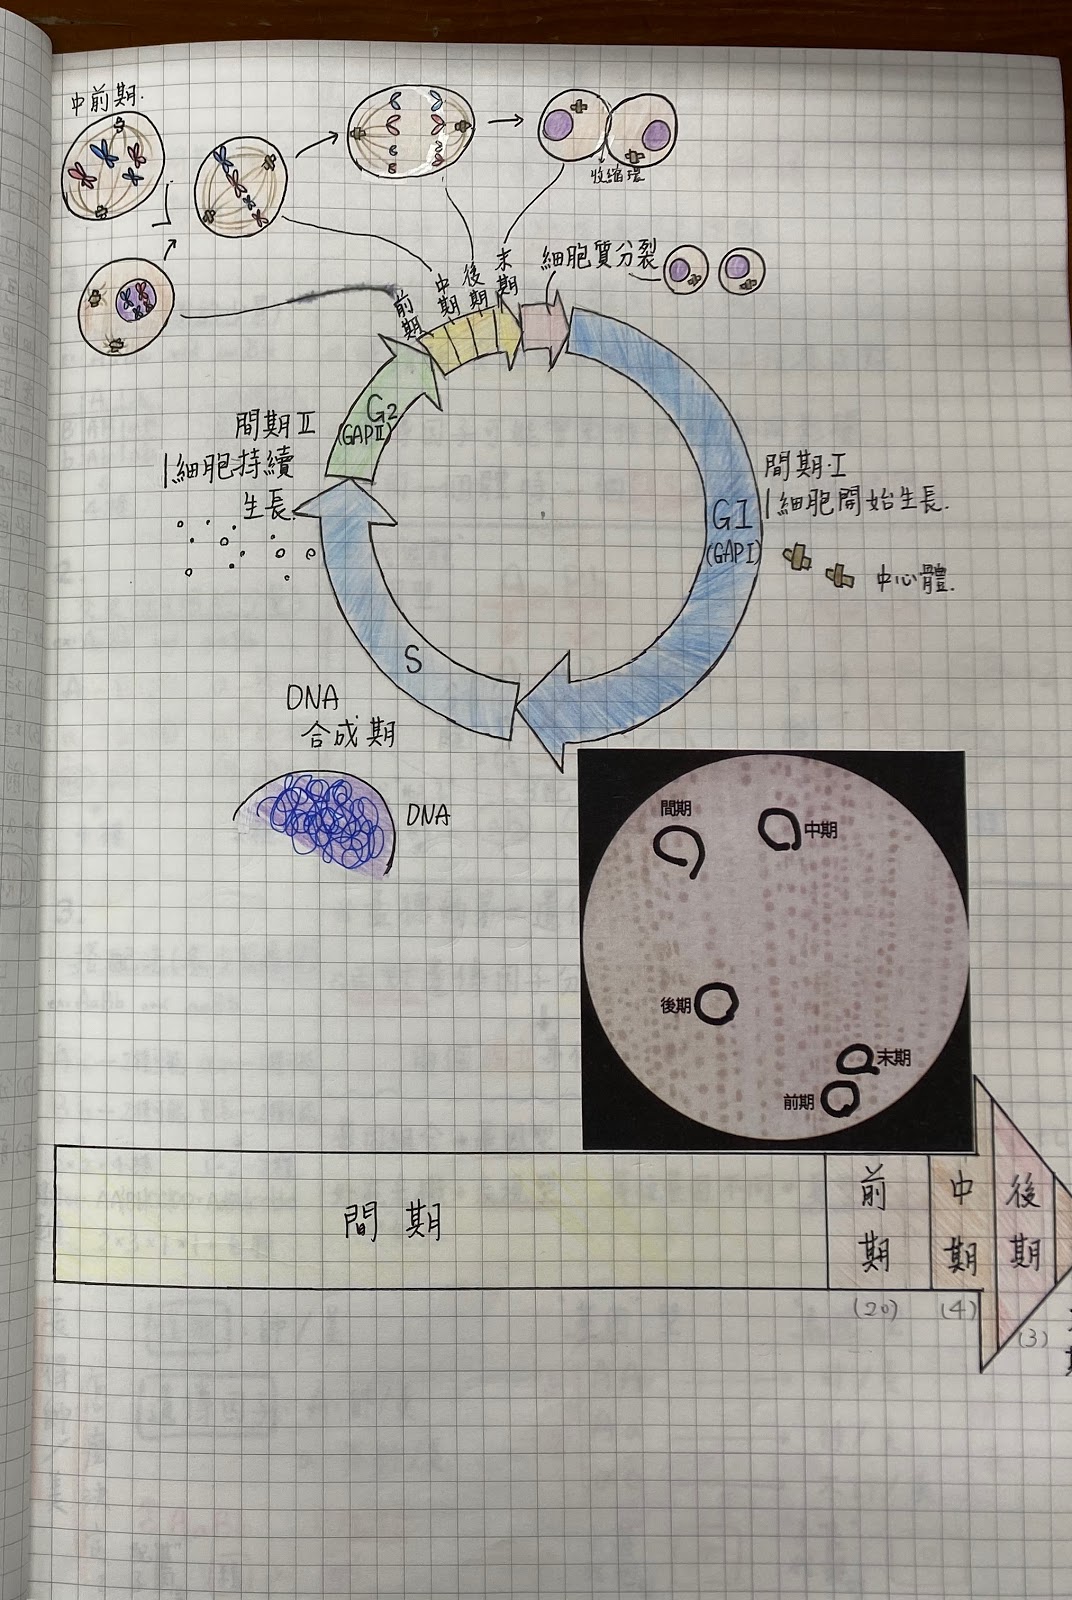 中前期.
收縮環
細胞質分裂
前期
中期
後期
末期
G2
(GAPⅡ)
間期Ⅱ
1細胞持續
生長.
間期·I
1細胞開始生長.
GI
(GAPI)
中心體.
S
DNA
合成期
DNA
間期
中期
後期
末期
前期
間期
前期
中期
後期
(20)
(4)
(3)